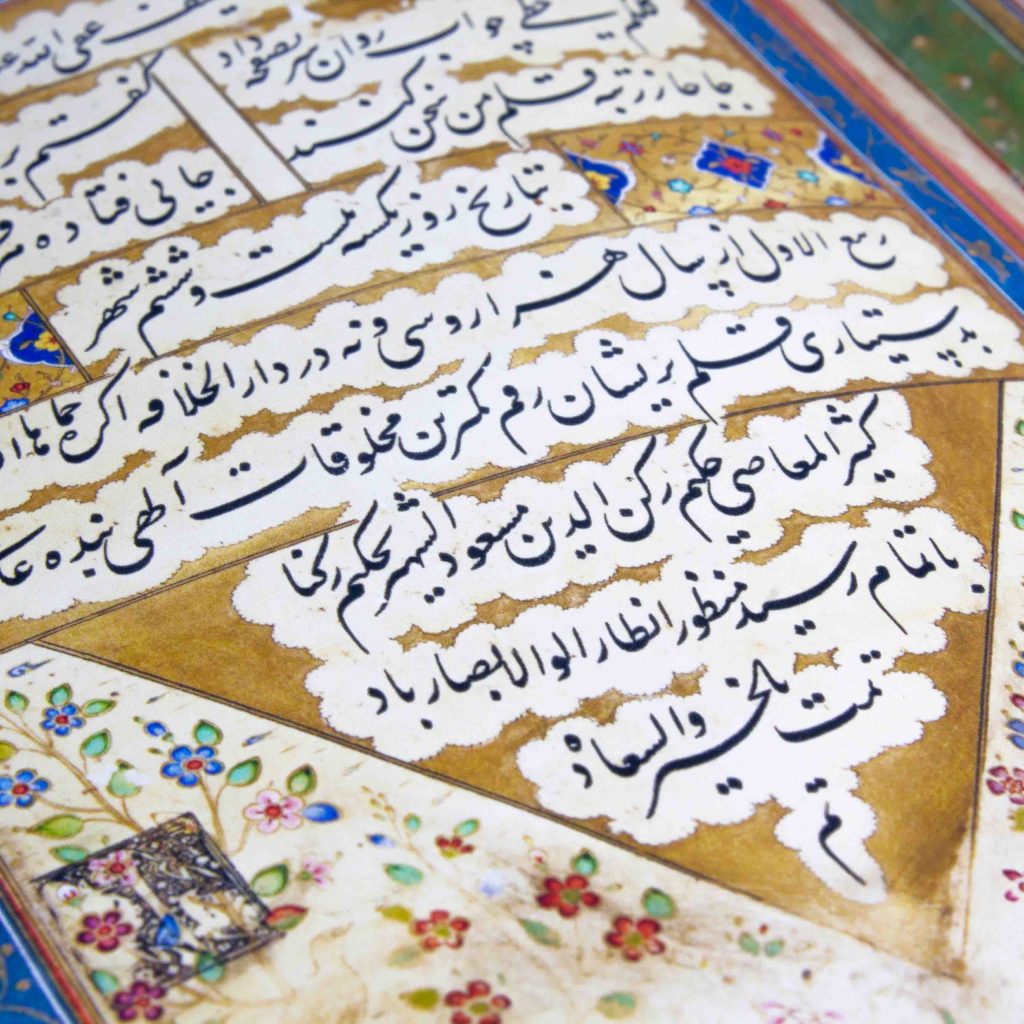 جواب روان بر صفحه داد
عفی الله عنه
جا حاز رتبه قلم من سخن کند
گفتم
جانی فتاده
بتاریخ روز یکشنبه بیست و ششم شهر
ربیع الاول از سال هزار و سی و نه در دار الخلافه اکبر
بدستیاری قلم پریشان رقم کمترین مخلوقات آلهی بنده
کثیر المعاصی حکیم رکن الدین مسعود الشهیر بحکیم رکنا
باتمام رسید منظور انظار الوالابصار باد
تمت بالخیر والسعاده
تم